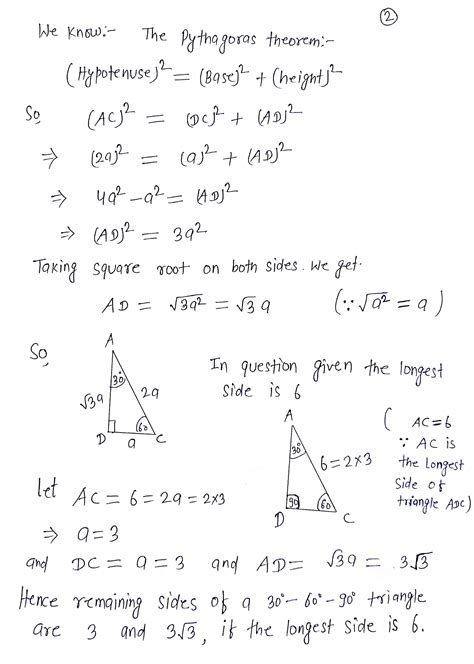 ②
We know:- The Pythagoras theorem:-
(Hypotenuse)² = (Base)² + (height)²
So (AC)² = (DC)² + (AD)²
⇒ (2a)² = (a)² + (AD)²
⇒ 4a² - a² = (AD)²
⇒ (AD)² = 3a²
Taking square root on both sides. We get.
AD = √3a² = √3 a (∵ √a² = a)
So
A
30°
√3a
2a
60
D
a
C
In question given the longest
side is 6
A
30°
6 = 2×3
90
60
D
C
( AC = 6
∵ AC is
the longest
side of
triangle ADC)
let AC = 6 = 2a = 2×3
⇒ a = 3
and DC = a = 3 and AD = √3a = 3√3
Hence remaining sides of a 30°-60°-90° triangle
are 3 and 3√3, if the longest side is 6.